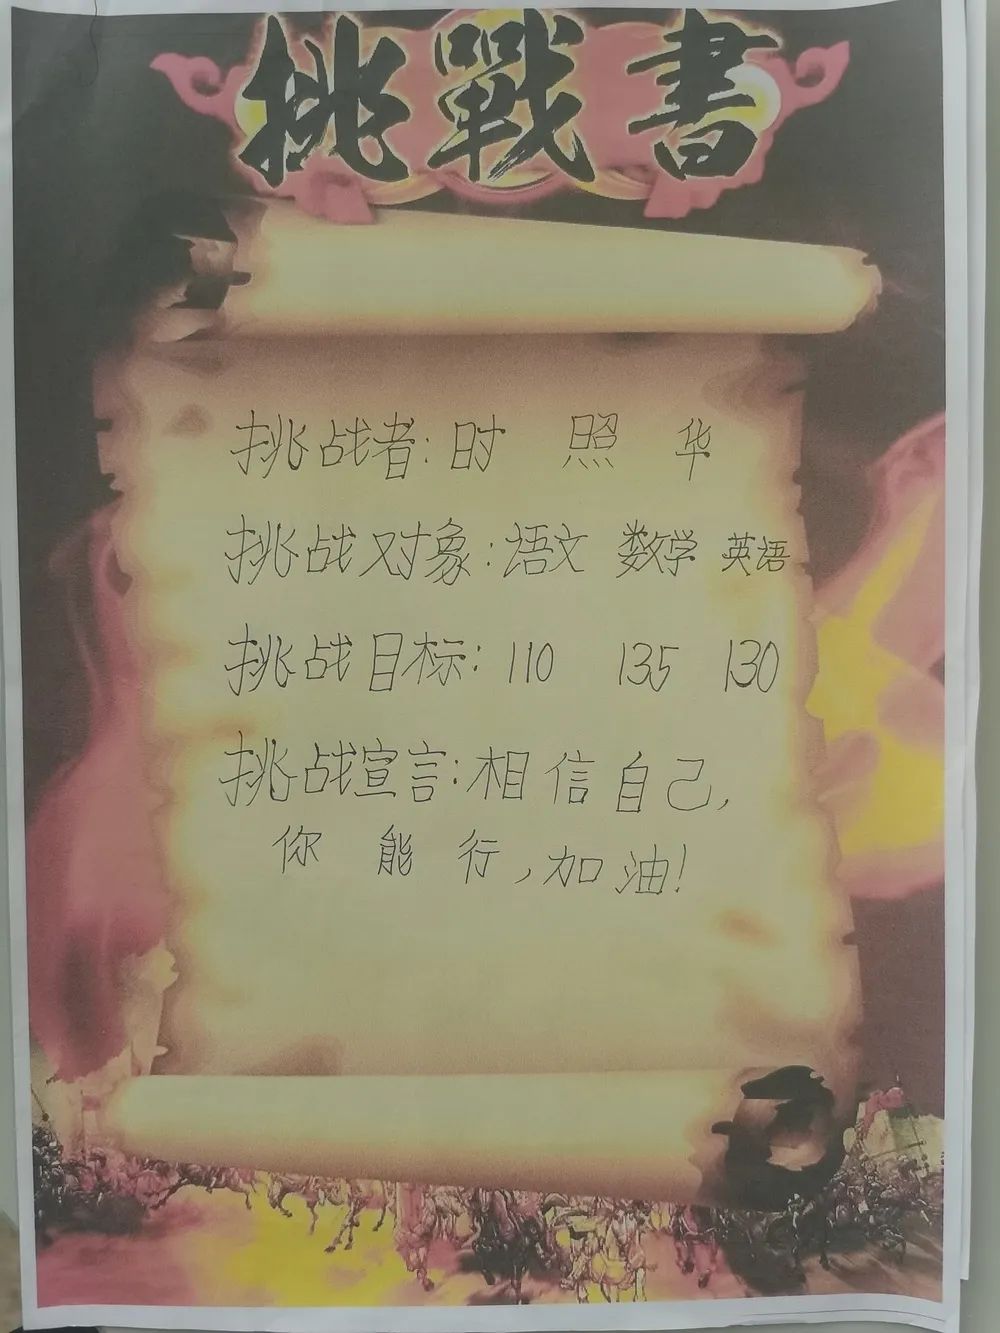 挑戰書
挑战者:时 照 华
挑战对象:语文 数学 英语
挑战目标:110 135 130
挑战宣言:相信自己,
你能行,加油!